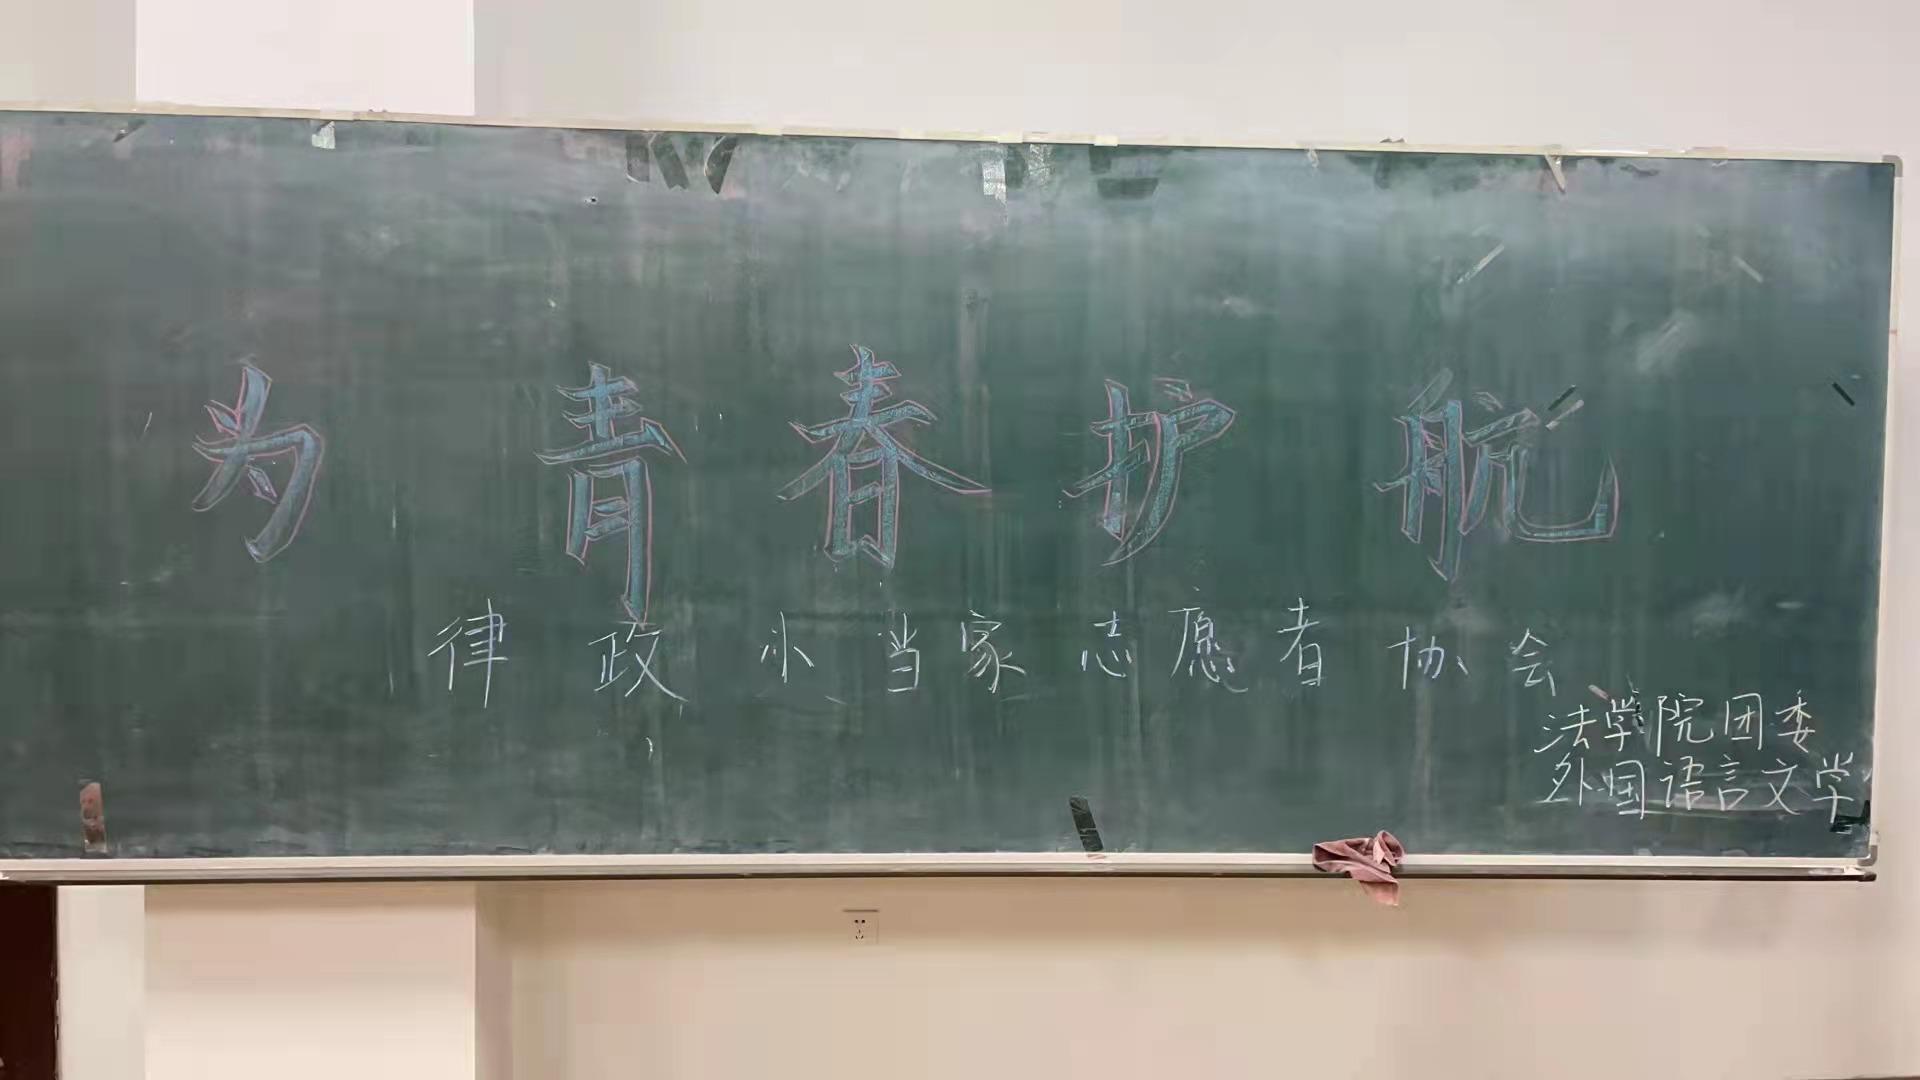 为青春护航
律政小当家志愿者协会
法学院团委
外国语言文学